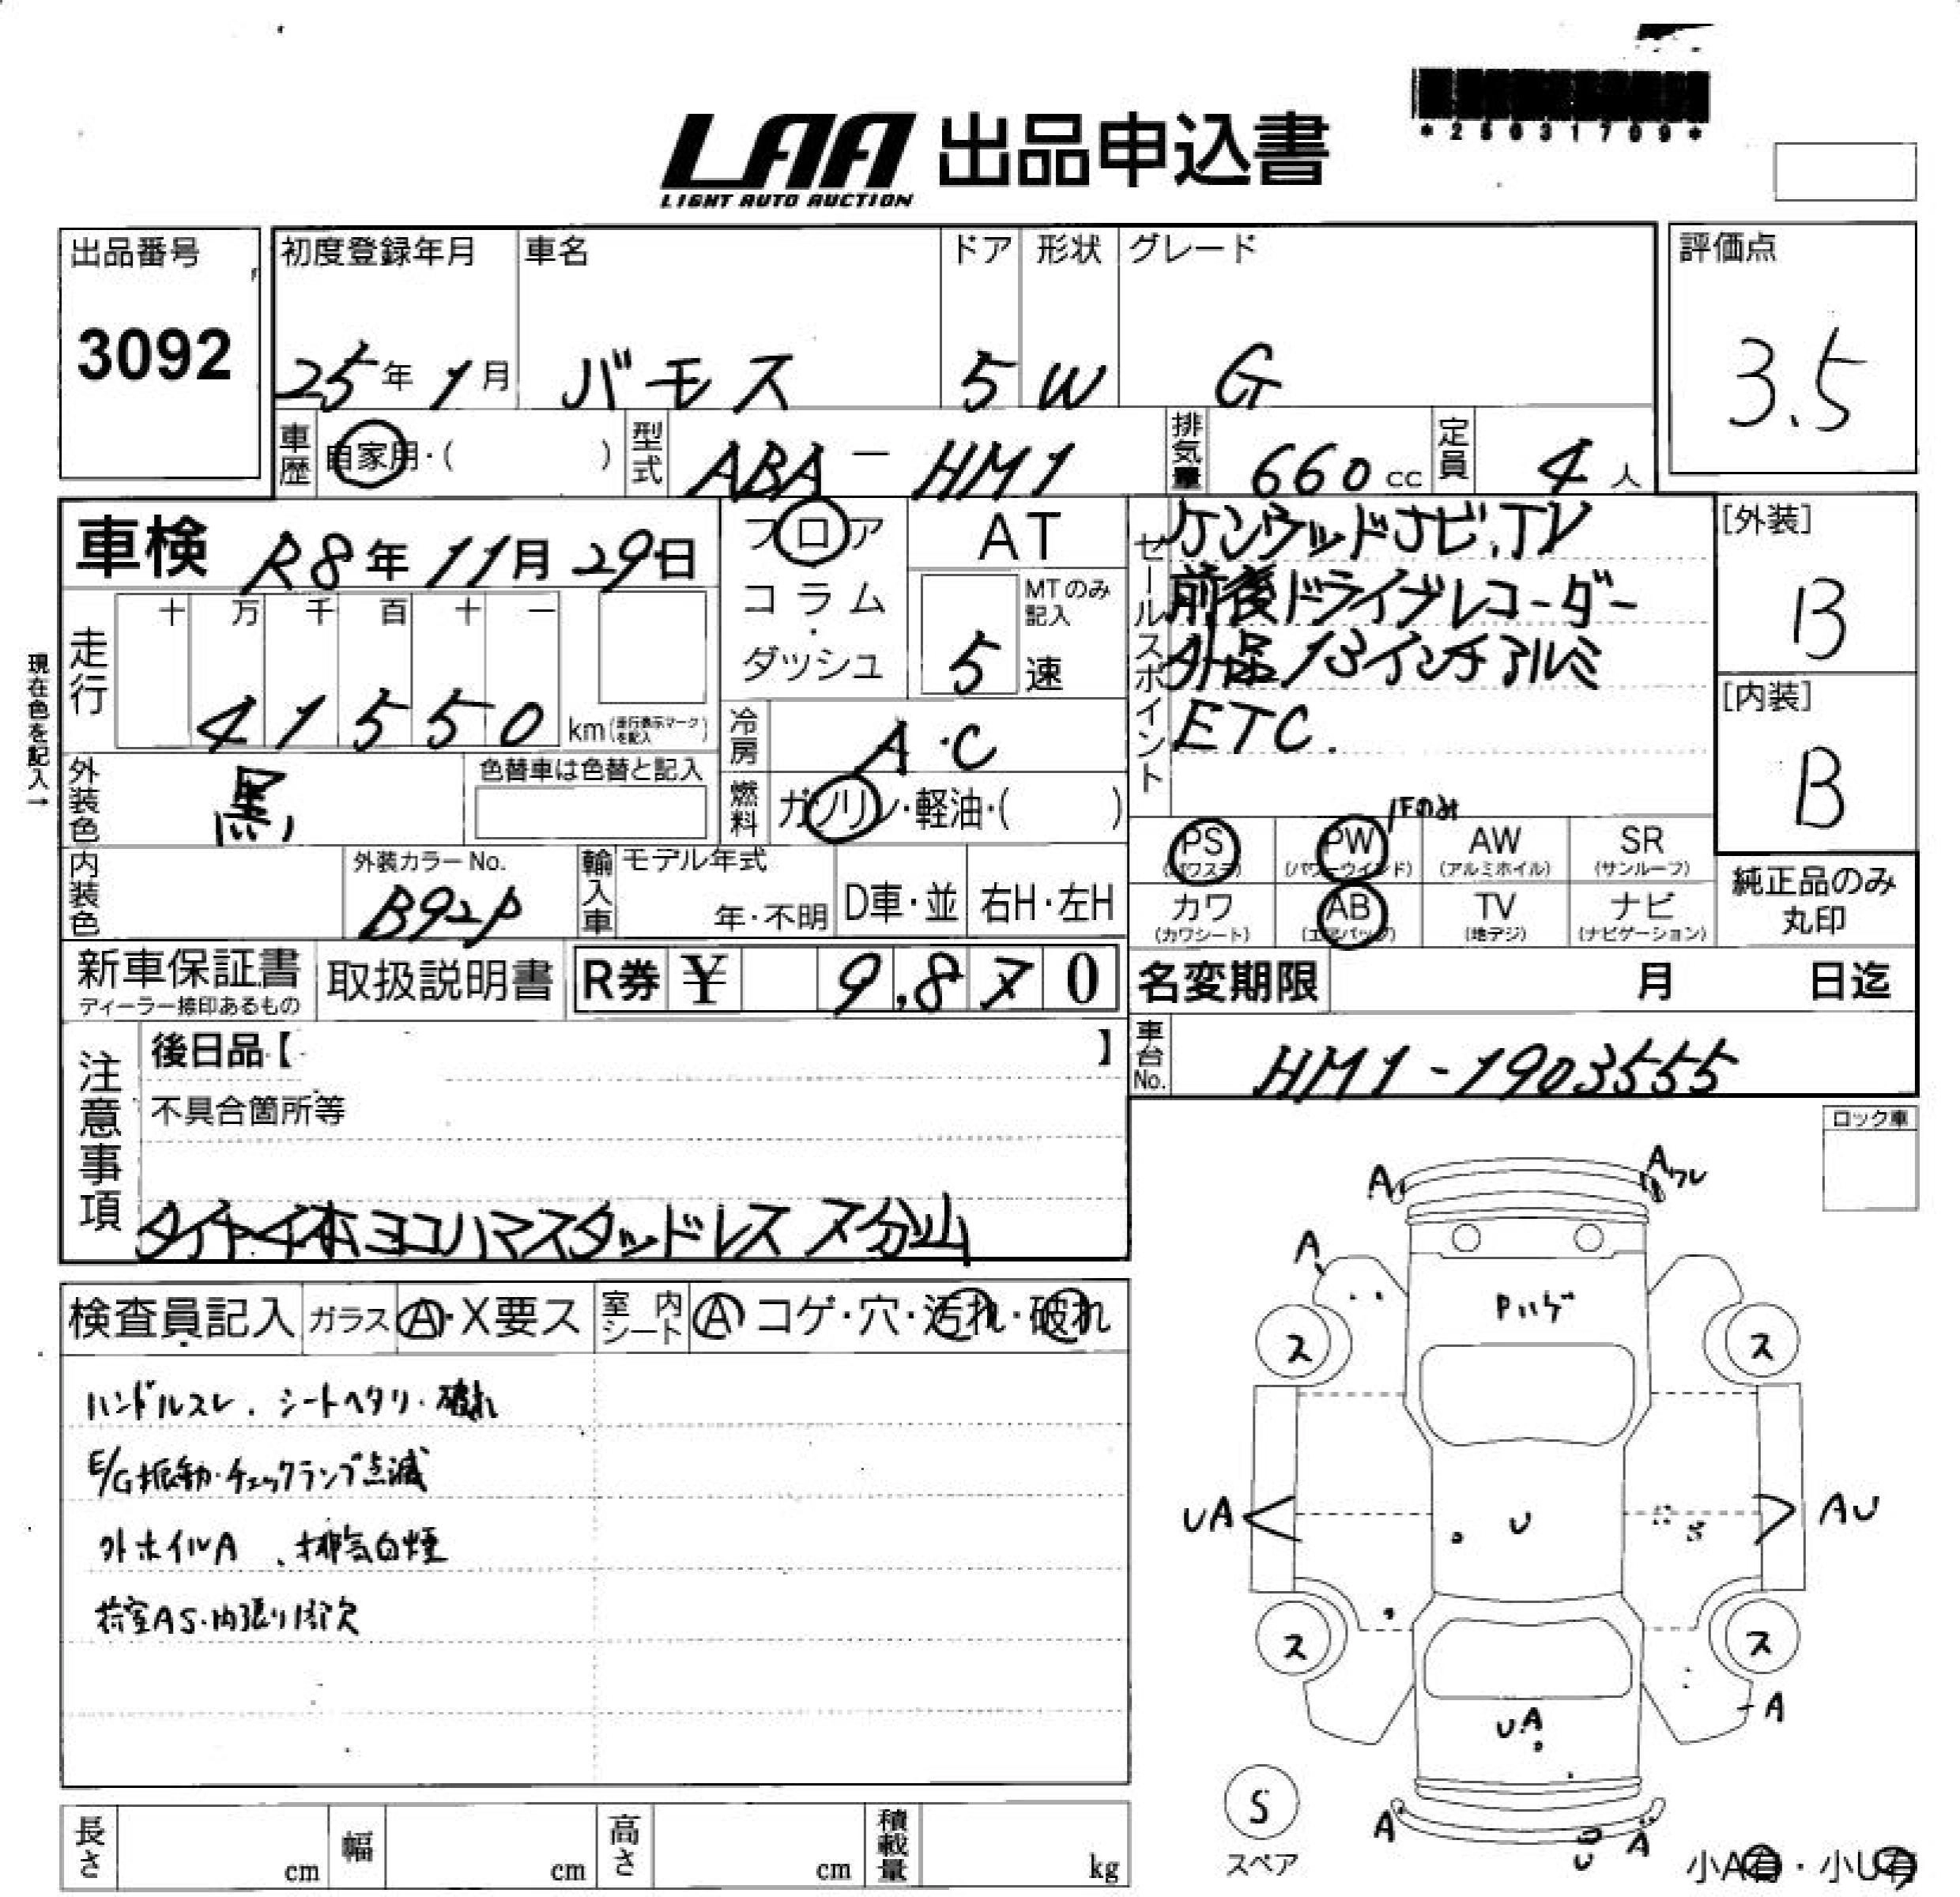 *25031709*
LAA 出品申込書
LIGHT AUTO AUCTION
出品番号 初度登録年月 車名 ドア 形状 グレード 評価点
3092 25年 1月 バモス 5 W G 3.5
車歴 自家用・( ) 型式 ABA-HM1 排気量 660cc 定員 4人
車検 R8年 11月 29日
フロア
コラム
・
ダッシュ
AT
MTのみ記入
5速
セールスポイント
ケンウッドナビ.TV
前後ドライブレコーダー
外品13インチアルミ
ETC.
[外装]
B
[内装]
B
現在色を記入→
走行
十 万 千 百 十 一
41550 km(走行表示マークを記入)
冷房 A・C
外装色 黒 色替車は色替と記入
燃料 ガソリン・軽油・( )
Fのみ
PS PW AW SR
(パワステ) (パワーウインド) (アルミホイル) (サンルーフ)
カワ AB TV ナビ
(カワシート) (エアバッグ) (地デジ) (ナビゲーション)
純正品のみ
丸印
内装色 外装カラーNo. B92P
輸入車 モデル年式 年・不明 D車・並 右H・左H
新車保証書
ディーラー捺印あるもの
取扱説明書 R券 ¥ 9,870
名変期限 月 日迄
注意事項
後日品【 】
車台No. HM1-1903555
不具合箇所等
タイヤ4本ヨコハマスタッドレス 7分山
ロック車
検査員記入 ガラス A・X要ス 室内シート A コゲ・穴・汚れ・破れ
ハンドルスレ.シートヘタリ・破れ
E/G振動・チェックランプ点滅
外ホイルA 、排気白煙
荷室AS・内張り部欠
A Aワレ
A
Pハゲ
ス ス
UA U AU
ス ス
UA A
S
スペア
A U A
小A有・小U有
長さ cm 幅 cm 高さ cm 積載量 kg